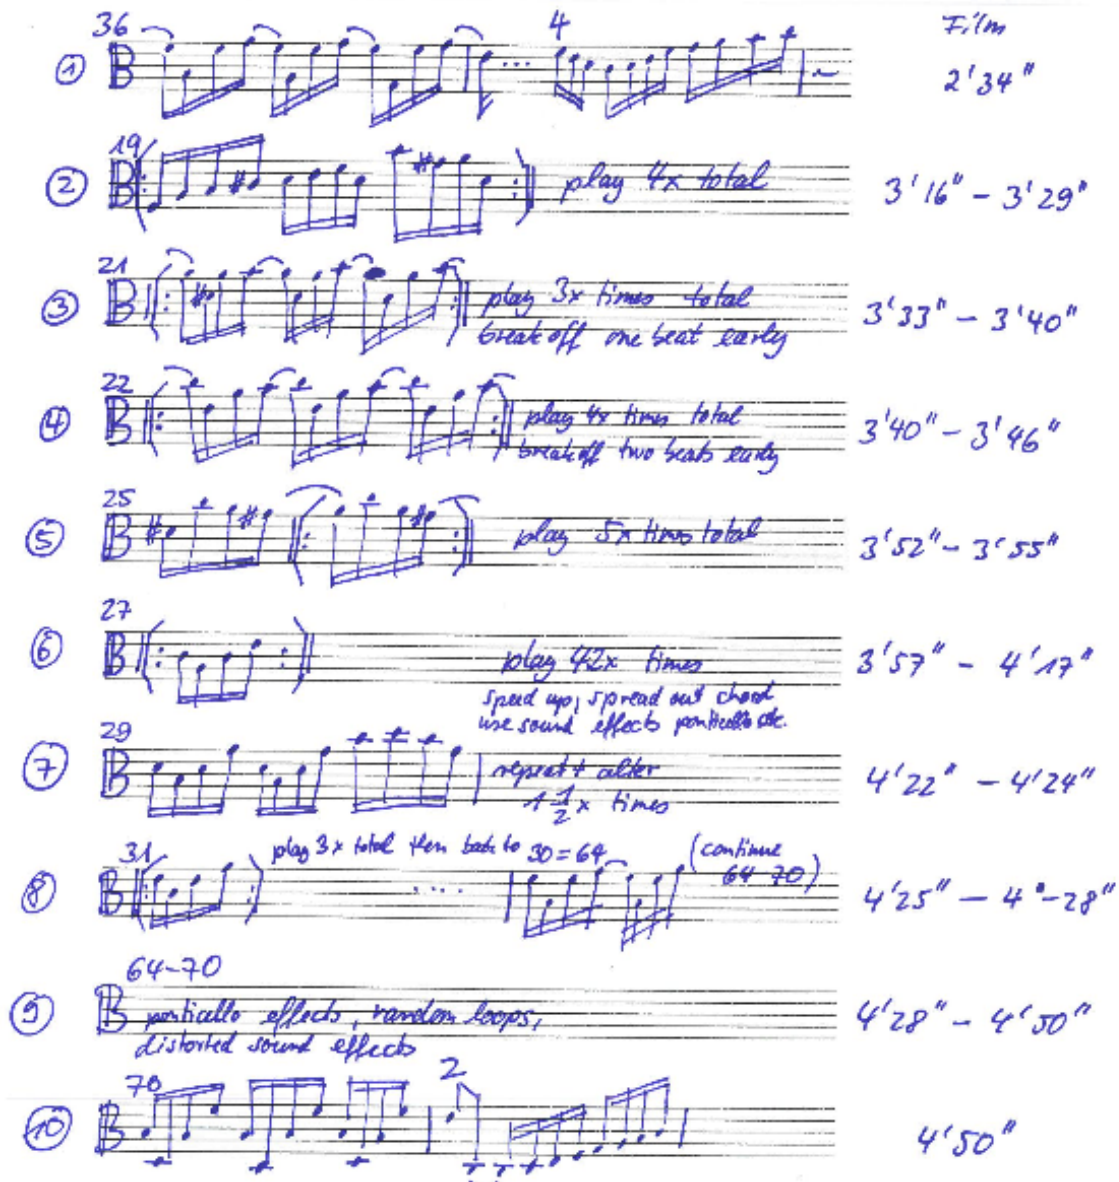 36 4 Film
① 2'34"
19
② play 4x total 3'16" - 3'29"
21
③ play 3x times total 3'33" - 3'40"
break off one beat early
22
④ play 4x times total 3'40" - 3'46"
break off two beats early
25
⑤ play 5x times total 3'52" - 3'55"
27
⑥ play 42x times 3'57" - 4'17"
speed up, spread out chord
use sound effects ponticello etc.
29
⑦ repeat + alter 4'22" - 4'24"
1 1/2 x times
31 play 3x total then back to 30=64 (continue
⑧ .... 64-70) 4'25" - 4"-28"
64-70
⑨ ponticello effects, random loops, 4'28" - 4'50"
distorted sound effects
70 2
⑩ 4'50"